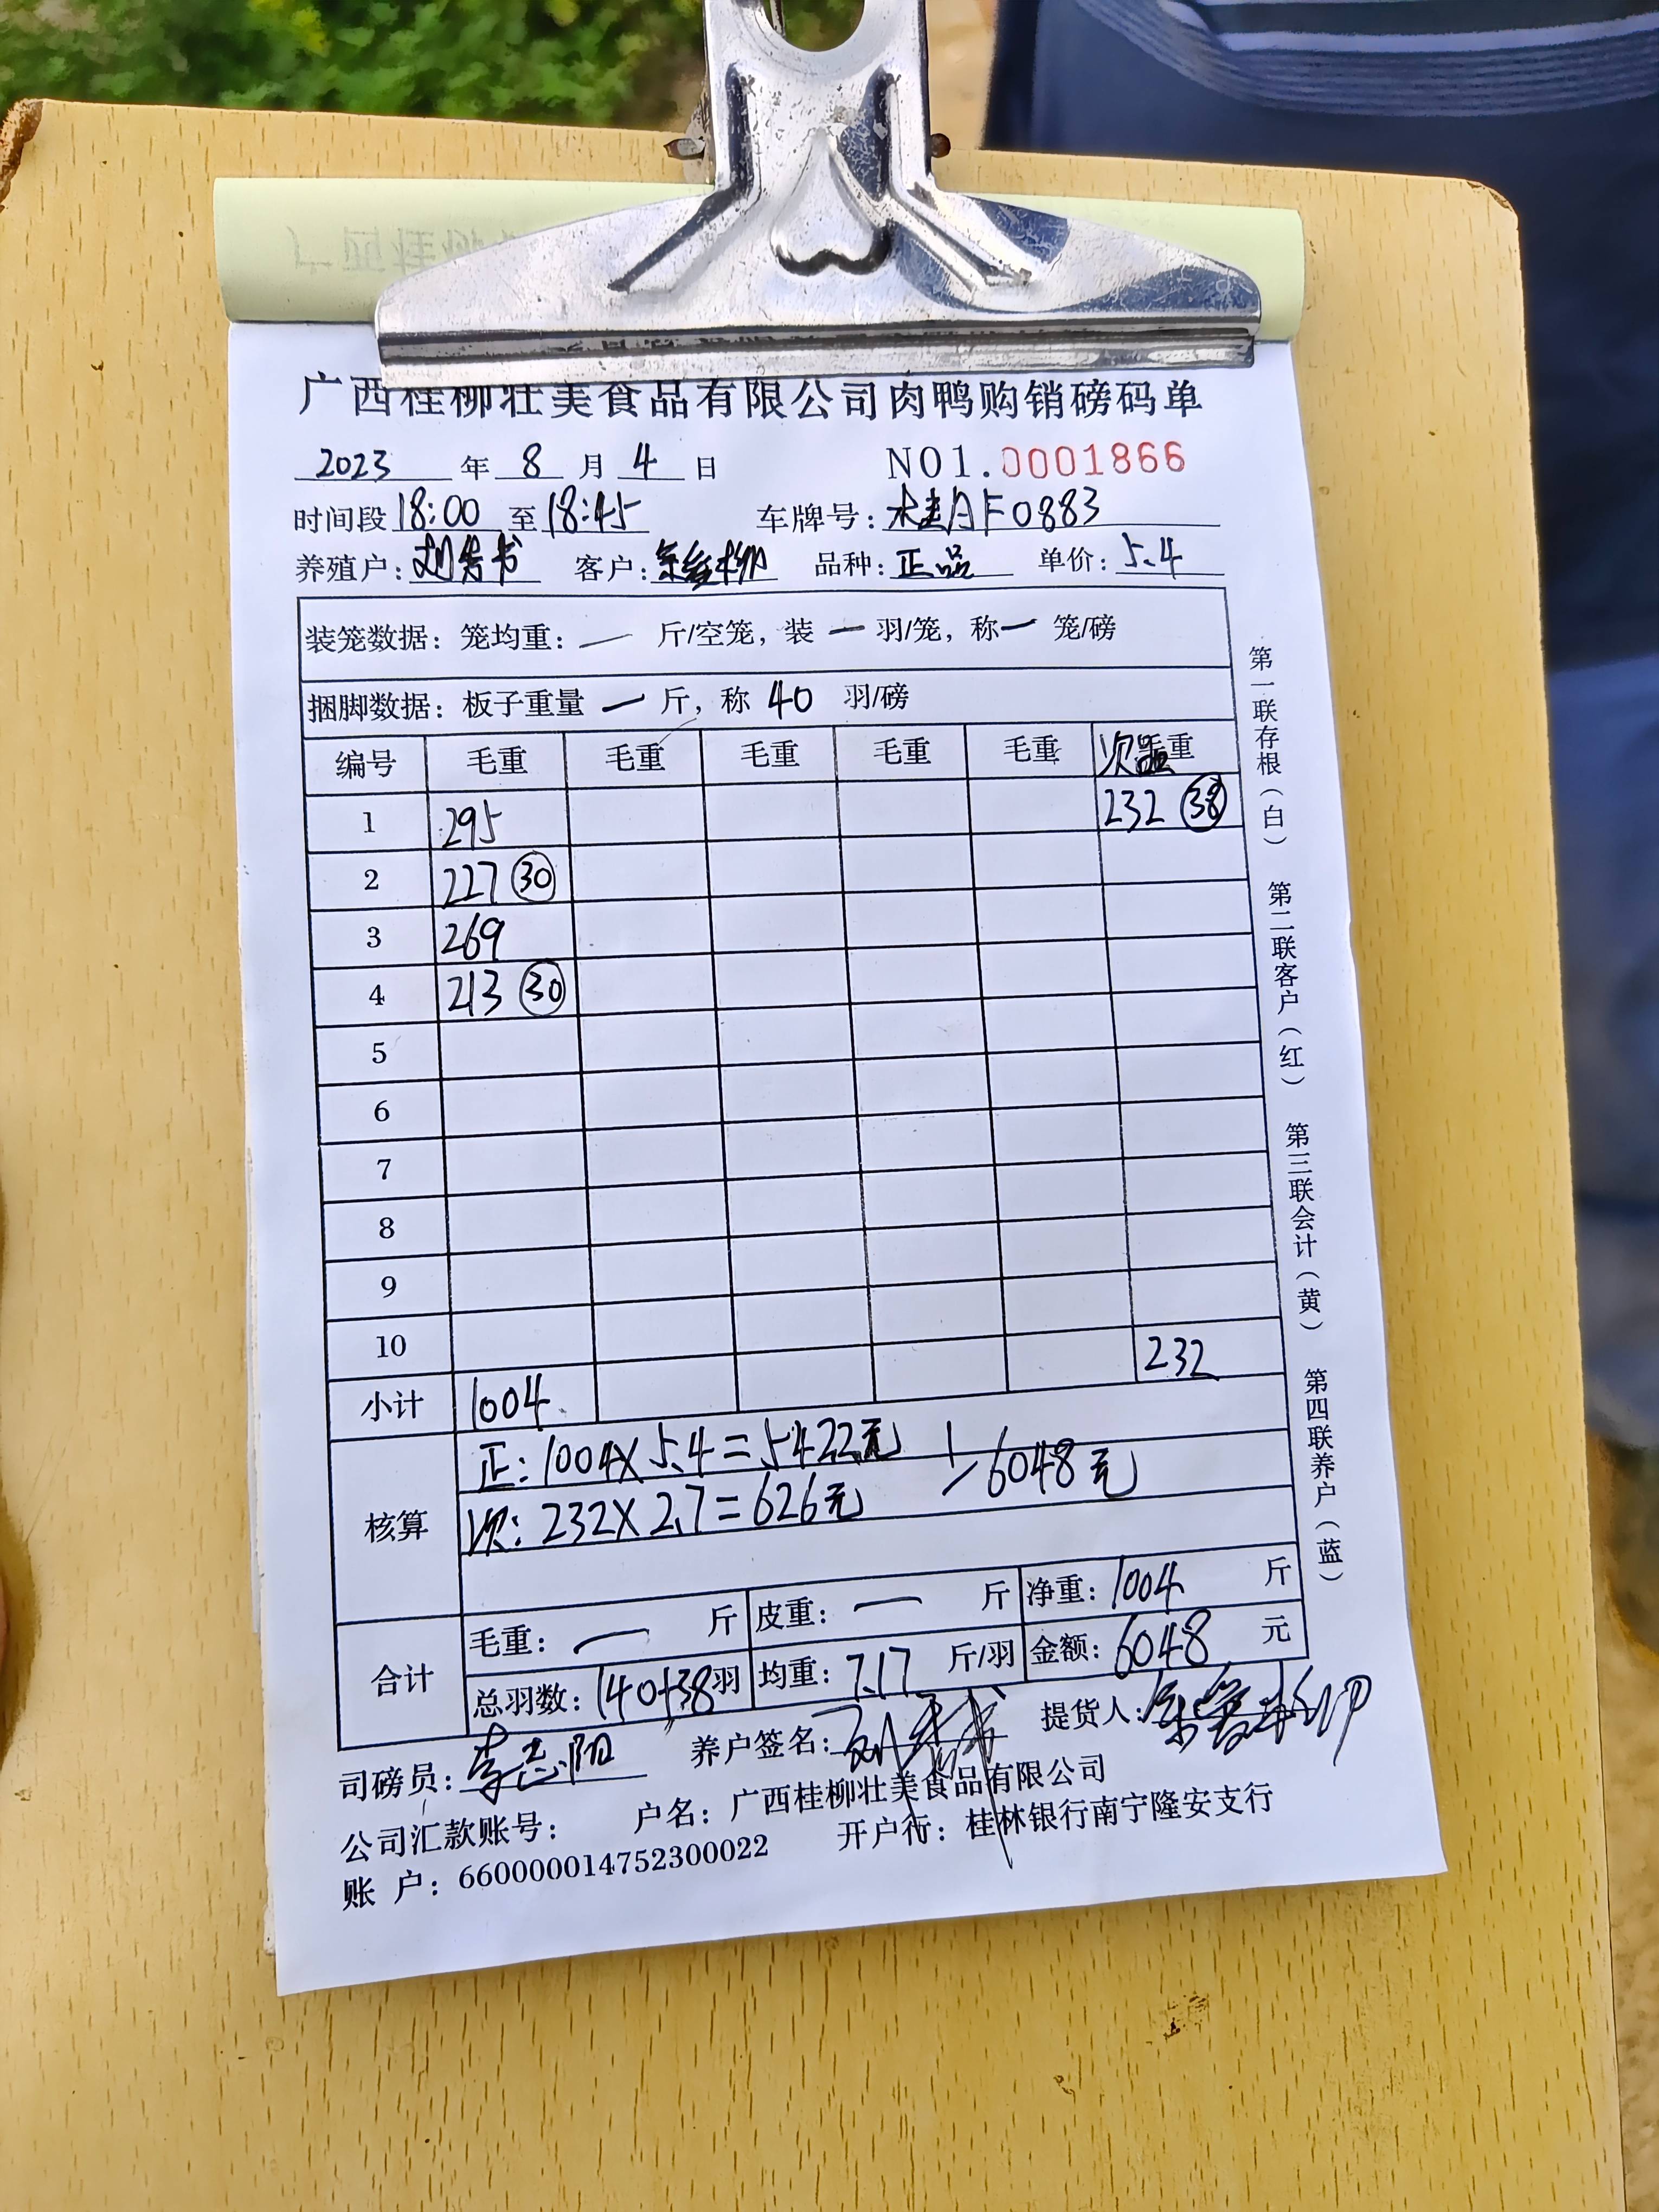 广西桂柳壮美食品有限公司肉鸭购销磅码单
2023 年 8 月 4 日 NO1.0001866
时间段 18:00 至 18:45 车牌号: 桂AF0883
养殖户: 客户: 品种: 正品 单价: 5.4
装笼数据: 笼均重: — 斤/空笼, 装 — 羽/笼, 称 — 笼/磅
捆脚数据: 板子重量 — 斤, 称 40 羽/磅
编号 毛重 毛重 毛重 毛重 毛重 次品 重
1 295 232 38
2 227 30
3 269
4 213 30
5
6
7
8
9
10 232
小计 1004
核算
正: 1004×5.4=5422元
次: 232×2.7=626元
6048元
合计
毛重: — 斤 皮重: — 斤 净重: 1004 斤
总羽数: 140+38羽 均重: 7.17 斤/羽 金额: 6048 元
司磅员: 李志阳 养户签名: 提货人:
公司汇款账号: 户名: 广西桂柳壮美食品有限公司
账 户: 660000014752300022 开户行: 桂林银行南宁隆安支行
第一联存根(白) 第二联客户(红) 第三联会计(黄) 第四联养户(蓝)